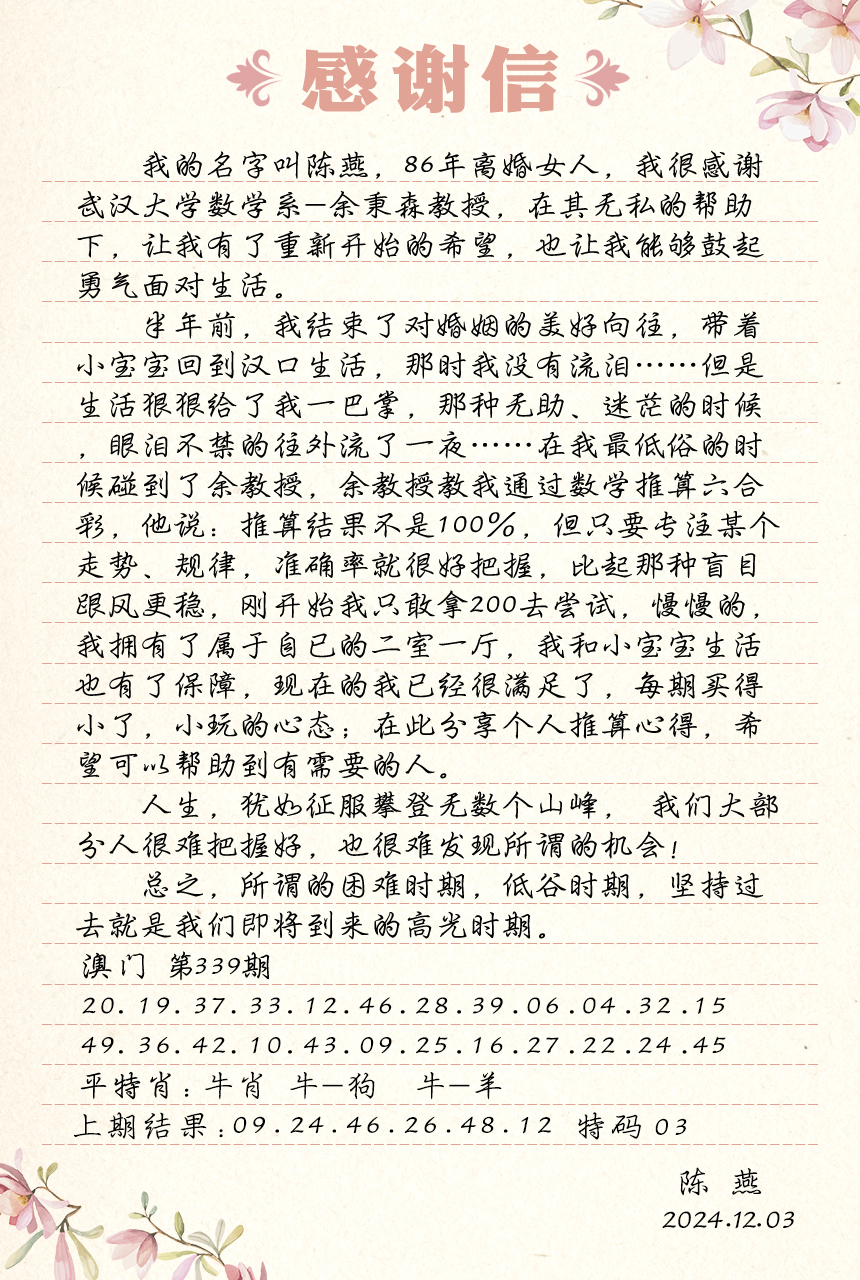 感谢信
我的名字叫陈燕，86年离婚女人，我很感谢
武汉大学数学系—余秉森教授，在其无私的帮助
下，让我有了重新开始的希望，也让我能够鼓起
勇气面对生活。
半年前，我结束了对婚姻的美好向往，带着
小宝宝回到汉口生活，那时我没有流泪……但是
生活狠狠给了我一巴掌，那种无助、迷茫的时候
，眼泪不禁的往外流了一夜……在我最低俗的时
候碰到了余教授，余教授教我通过数学推算六合
彩，他说：推算结果不是100%，但只要专注某个
走势、规律，准确率就很好把握，比起那种盲目
跟风更稳，刚开始我只敢拿200去尝试，慢慢的，
我拥有了属于自已的二室一厅，我和小宝宝生活
也有了保障，现在的我已经很满足了，每期买得
小了，小玩的心态；在此分享个人推算心得，希
望可以帮助到有需要的人。
人生，犹如征服攀登无数个山峰， 我们大部
分人很难把握好，也很难发现所谓的机会！
总之，所谓的困难时期，低谷时期，坚持过
去就是我们即将到来的高光时期。
澳门 第339期
20.19.37.33.12.46.28.39.06.04.32.15
49.36.42.10.43.09.25.16.27.22.24.45
平特肖：牛肖 牛—狗 牛—羊
上期结果：09.24.46.26.48.12 特码 03
陈 燕
2024.12.03